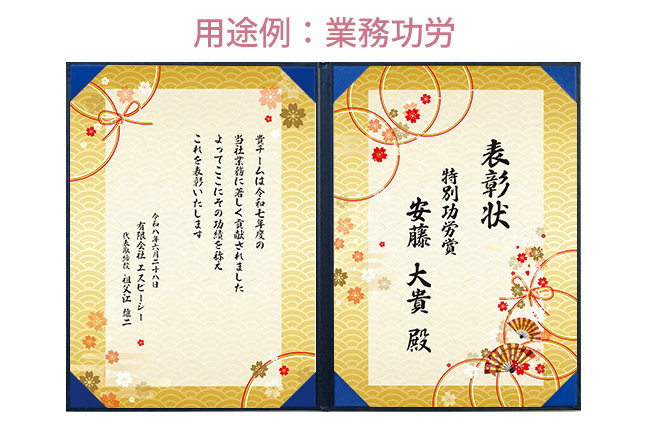 用途例：業務功労
表彰状
特別功労賞
安藤 大貴 殿
貴チームは令和七年度の
当社業務に著しく貢献されました
よってここにその功績を称え
これを表彰いたします
令和八年六月二十八日
有限会社 エスピーシー
代表取締役 祖父江 雄二